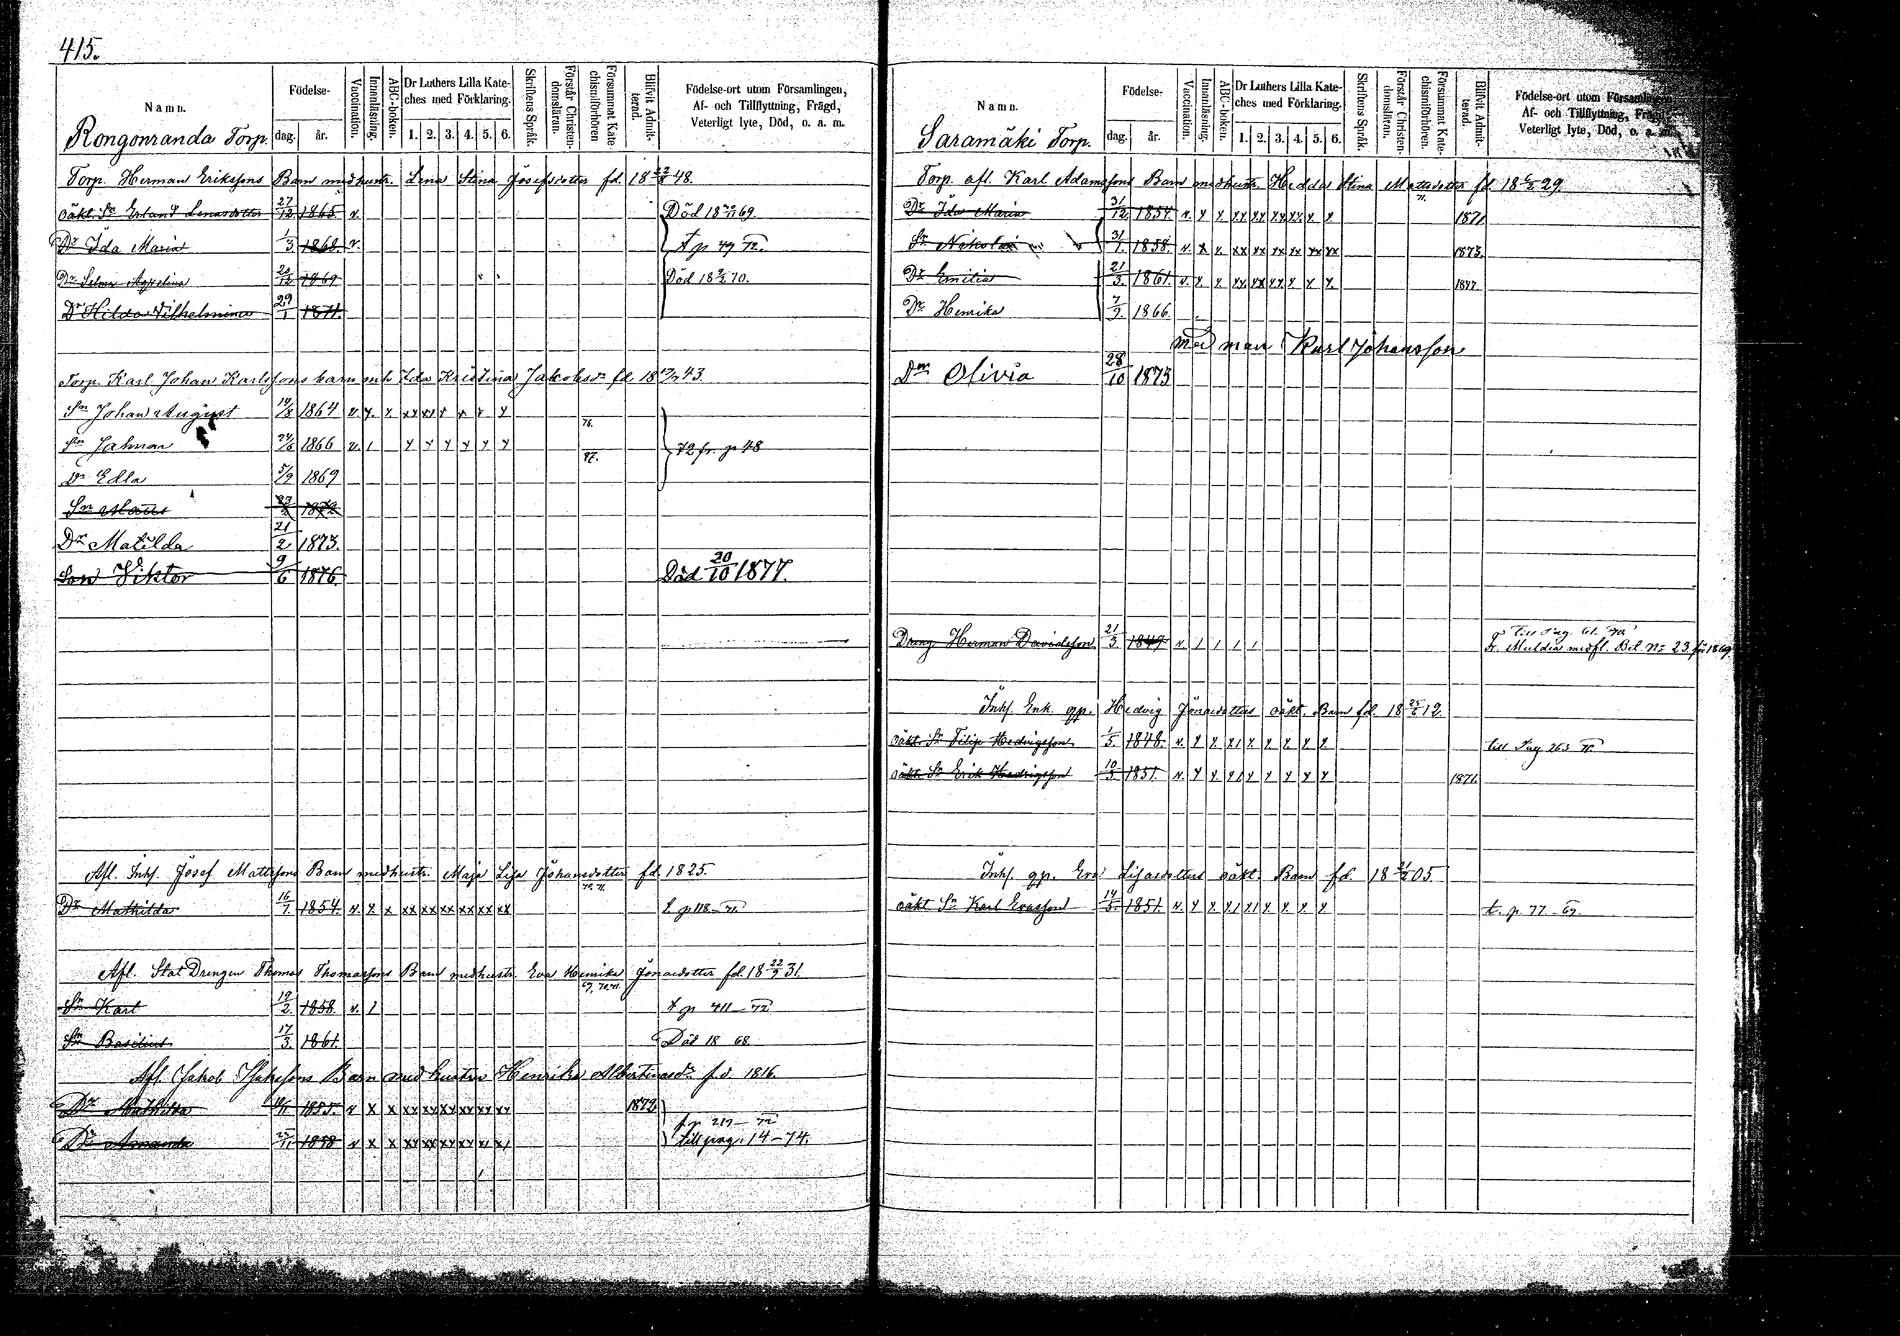 415.
Namn.
Födelse-
dag.
år.
Vaccination.
Innanläsning.
ABC-boken.
Dr Luthers Lilla Kate-
ches med Förklaring.
1. 2. 3. 4. 5. 6.
Skriftens Språk.
Förstår Christen-
domsläran.
Försummat Kate-
chismiförhören
Blifvit Admit-
terad.
Födelse-ort utom Församlingen,
Af- och Tillflyttning, Frägd,
Veterligt lyte, Död, o. a. m.
Rongonranda Torp.
Torp. Herman Erikssons Barn med hustr. Lena Stina Josefsdotter fd. 18 22/8 48.
oäkt. Sn Erland Lenasdotter 27/12 1865 v. Död 18 69.
Dr Ida Maria 1/3 1868 v. t p 49 72.
Dr Selma 1869 Död 18 70.
Dr Hilda Vilhelmina 29/1 1871.
Torp. Karl Johan Karlssons barn mh Eda Kristina Jakobsdr fd. 18 43.
Sn Johan August 14/8 1864 v. x x xx xx x x x x 76.
Sn Jalmar 24/6 1866 v. 1 x x x x x x 77. 72 fr. p 48
Dr Edla 5/9 1869
Sn 1872
Dr Matilda 21/2 1873.
Son Viktor 9/6 1876. Död 20/10 1877.
Afl. Inhs. Josef Mattssons Barn med hustr. Maja Lisa Johansdotter fd. 1825.
70. 71.
Dr Mathilda 16/7 1854. v. x x xx xx xx xx xx xx t. p 118 - 71.
Afl. Stat Drengen Thomas Thomassons Barn med hustr. Eva Henrika Jonasdotter fd. 18 22/9 31.
69, 70, 71.
Sn Karl 19/2 1858. v. 1 t p 411 - 72
Sn Basilius 17/3 1861. Död 18 68.
Afl. Jakob Isakssons Barn med hustru Henrika Albertinasdr f.d. 1816.
Dr Mathilda 1855. v x x xx xx xx xx xx xx 1872
t p 217 - 72
Dr Amanda 25/11 1858 v x x xx xx xx xx x x till pag. 14 - 74.
Namn.
Födelse-
dag.
år.
Vaccination.
Innanläsning.
ABC-boken.
Dr Luthers Lilla Kate-
ches med Förklaring.
1. 2. 3. 4. 5. 6.
Skriftens Språk.
Förstår Christen-
domsläran.
Försummat Kate-
chismiförhören.
Blifvit Admit-
terad.
Födelse-ort utom Församlingen
Af- och Tillflyttning, Frägd,
Veterligt lyte, Död, o. a. m.
Saramäki Torp.
Torp. afl. Karl Adamssons Barn med hustr. Hedda Stina Mattsdotter fd. 18 6/2 29.
71.
Dr Ida Maria 31/12 1854. v. x x xx xx xx xx x x 1871
Sn Nikolai 31/1. 1858. v. x x xx xx xx xx xx xx 1873.
Dr Emilia 21/3. 1861. v. x x xx xx xx x x x 1877
Dr Henrika 7/9. 1866.
med man Karl Johansson
Dr Olivia 28/10 1873
Dreng Herman Davidsson 21/3. 1849 v. 1 1 1 1 till Pag 61 70
Fr. Muldia medfl. Bet. No 23. för 1869
Inhs. Enk. gp. Hedvig Jonasdotters oäkt. Barn fd. 18 12.
oäkt. Sn Filip Hedvigsson 1/5. 1848. v. x x x1 x x x x x till Pag 263 70
oäkt. Sn Erik Hedvigsson 10/3. 1851. v. x x x1 x x x x x 1871.
Inhs. gp. Eva Lisasdotters oäkt. Barn fd. 18 05.
oäkt Sn Karl Evasson 14/5. 1851. v. x x x1 x1 x x x x t. p. 77 - 69.